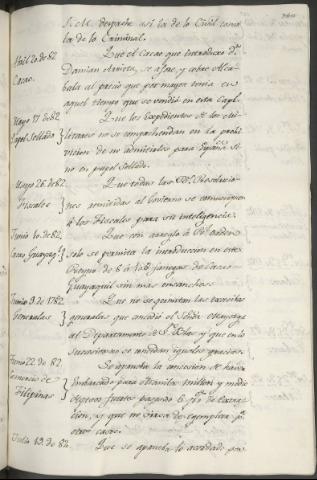 S. M. despache así la de lo Civil como
la de lo Criminal.
Abril 20. de 82.
Cacao.
Que el Cacao que introduxo Dn.
Damian Arrieta, se afore, y cobre Alca-
bala al precio que por mayor tenia en
aquel tiempo que se vendió en esta Capl.
Mayo 17. de 82.
Papel Sellado
Que los Expedientes de los Mi-
litares no se comprehendan en la prohi-
vicion de no admitirlos para España si
no en papel Sellado.
Mayo 26. de 82.
Fiscales
Que todas las Rs. Resolucio-
nes remitidas al Govierno se comuniquen
á los Fiscales para su inteligencia.
Junio 1o. de 82.
Cacao Guayaq.l
Que con arreglo á Rl. orden
solo se permita la introduccion en este
Reyno de 6 á 8 fanegas de Cacao
Guayaquil sin mas ensanches.
Junio 9. de 1782.
Generales
Que no se permitan las
generales que concedió el Señor Mayorga
al Departamento de Sn. Blas y que en lo
succesivo se concedan iguales gracias.
Junio 22. de 82.
Comercio de
Filipinas
Se aprueba la omision de haver
Embarcado para Manila millon y medio
de pesos fuertes pagando 6 prC. de Extrac-
cion, y que no sirva de exemplar pa.
otros casos.
Julio 19. de 82.
Que se aprueba lo acordado por